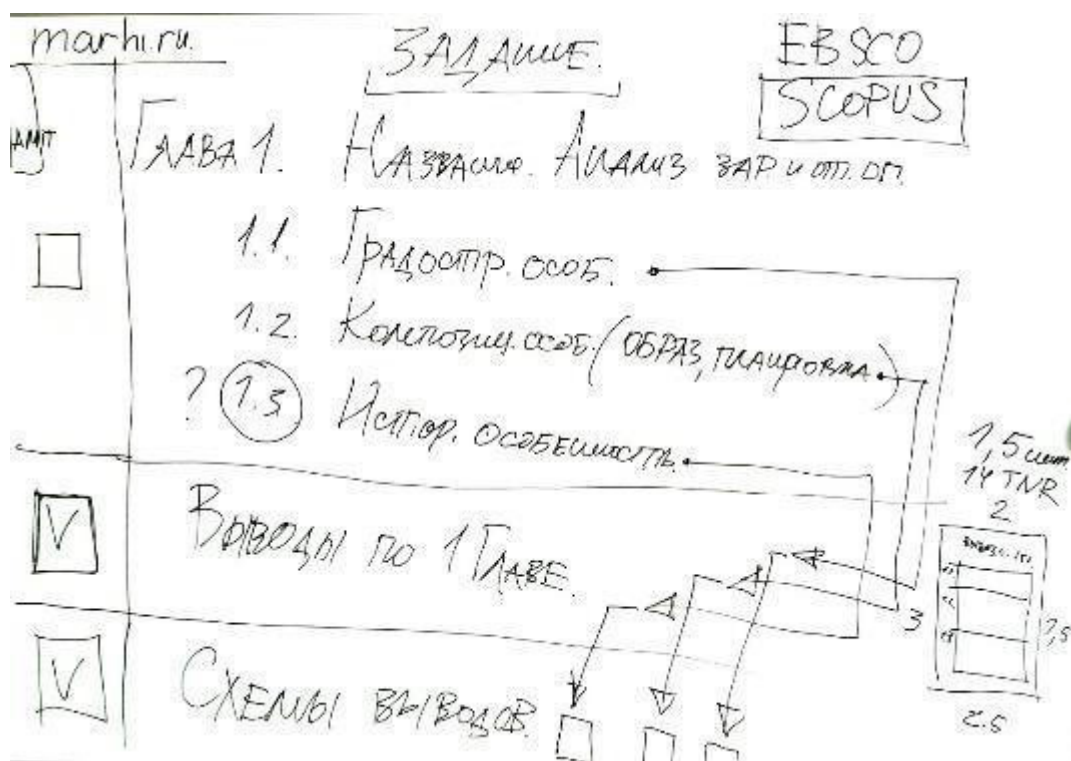 marhi.ru.
ЗАДАНИЕ.
EBSCO
SCOPUS
ГЛАВА 1. НАЗВАНИЕ. АНАЛИЗ ЗАР И ОТ. ОП.
1.1. ГРАДОСТР. ОСОБ.
1.2. КОМПОЗИЦ. ОСОБ. (ОБРАЗ, ПЛАНИРОВКА)
? 1.3 ИСТОР. ОСОБЕННОСТЬ.
1,5 инт.
14 TNR
2
V ВЫВОДЫ ПО 1 ГЛАВЕ.
3
2.5
V СХЕМЫ ВЫВОДОВ.